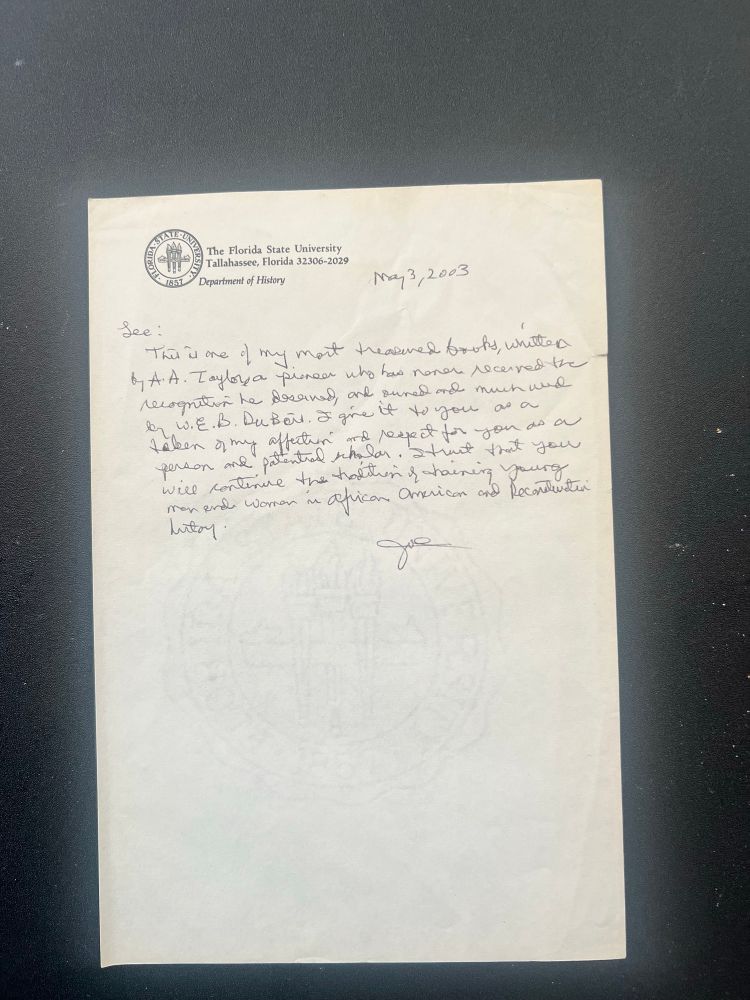 FLORIDA·STATE·UNIVERSITY
1857
The Florida State University
Tallahassee, Florida 32306-2029
Department of History
May 3, 2003
This is one of my most treasured books, written
by A.A. Taylor, a pioneer who has never received the
recognition he deserved, and owned and much used
by W.E.B. DuBois. I give it to you as a
token of my affection and respect for you as a
person and potential scholar. I trust that you
will continue the tradition of training young
men and women in African American and Reconstruction
history.
Joe